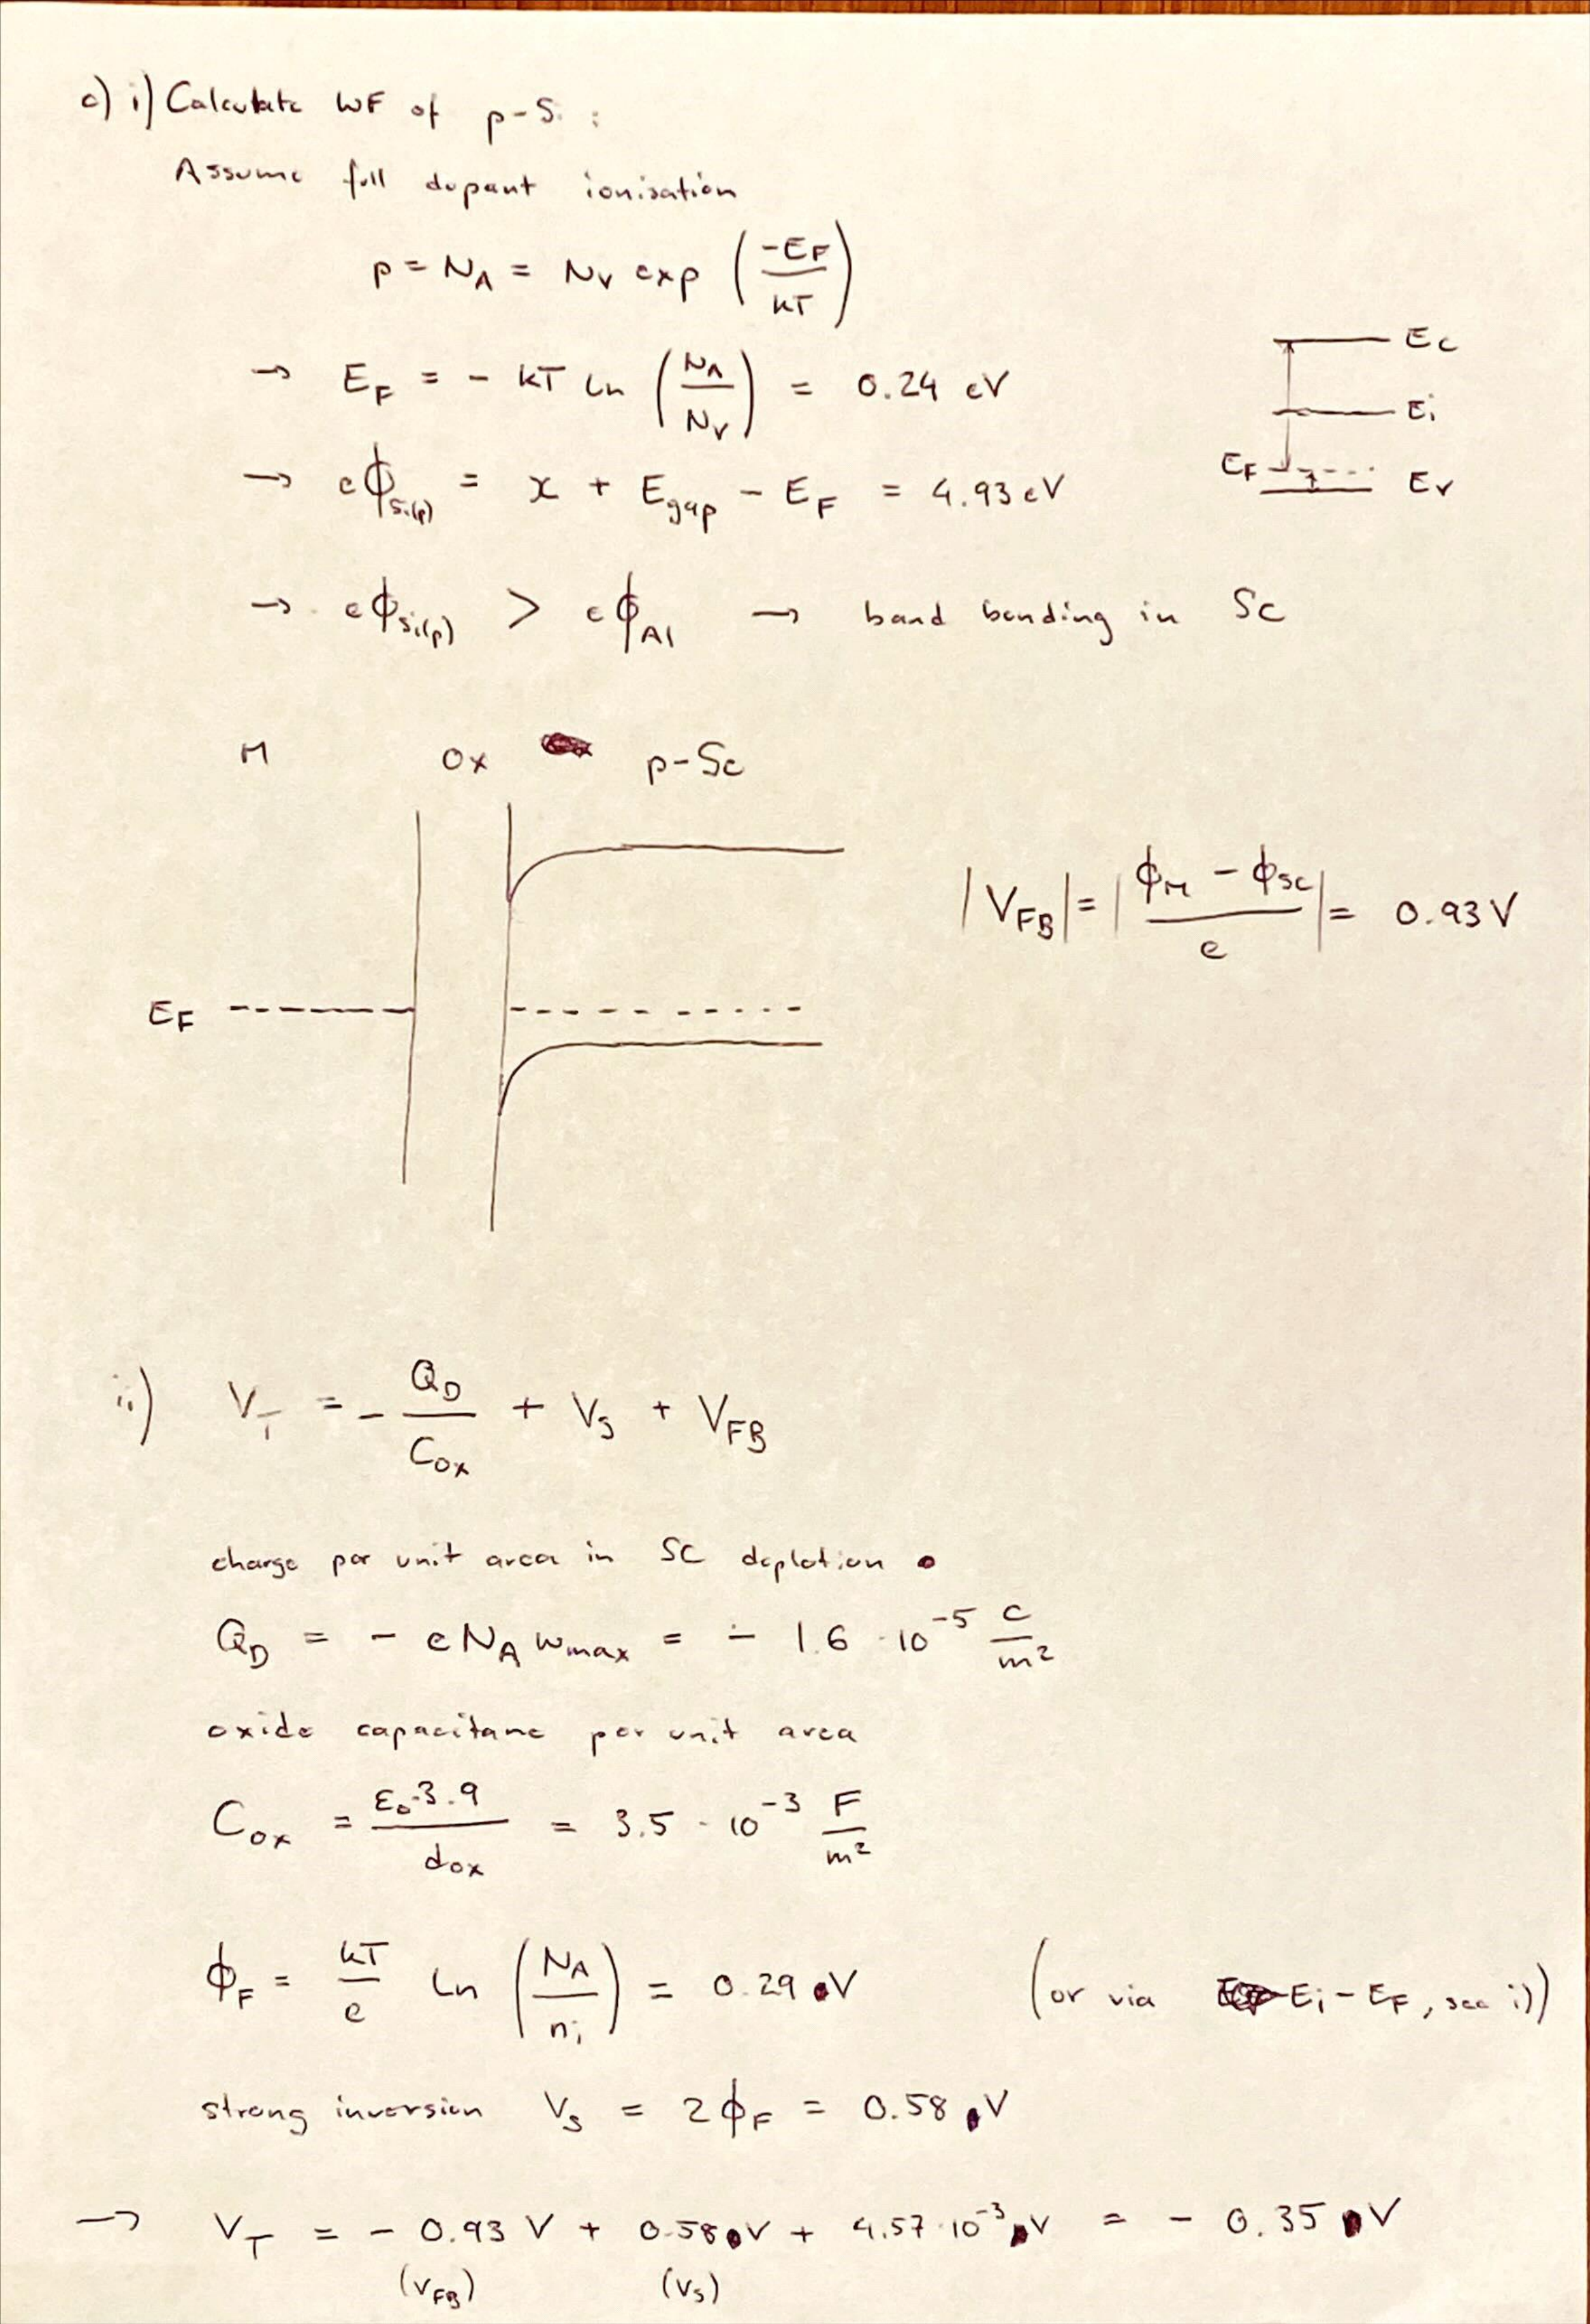 c) i) Calculate WF of p-Si :
Assume full dopant ionisation
p = N_A = N_V exp (-E_F / kT)
→ E_F = - kT ln (N_A / N_V) = 0.24 eV
E_C
E_i
E_F
E_V
→ eϕ_Si(p) = χ + E_gap - E_F = 4.93 eV
→ eϕ_Si(p) > eϕ_Al → band bending in SC
M Ox p-Sc
|V_FB| = |ϕ_M - ϕ_SC / e| = 0.93 V
E_F
ii) V_T = - Q_D / C_ox + V_S + V_FB
charge per unit area in SC depletion
Q_D = - e N_A w_max = - 1.6 · 10^-5 C/m²
oxide capacitanc per unit area
C_ox = ε_0·3.9 / d_ox = 3.5 · 10^-3 F/m²
ϕ_F = kT/e ln (N_A / n_i) = 0.29 V (or via E_i - E_F, see i))
strong inversion V_S = 2ϕ_F = 0.58 V
→ V_T = - 0.93 V + 0.58 V + 4.57·10^-3 V = - 0.35 V
(V_FB) (V_S)